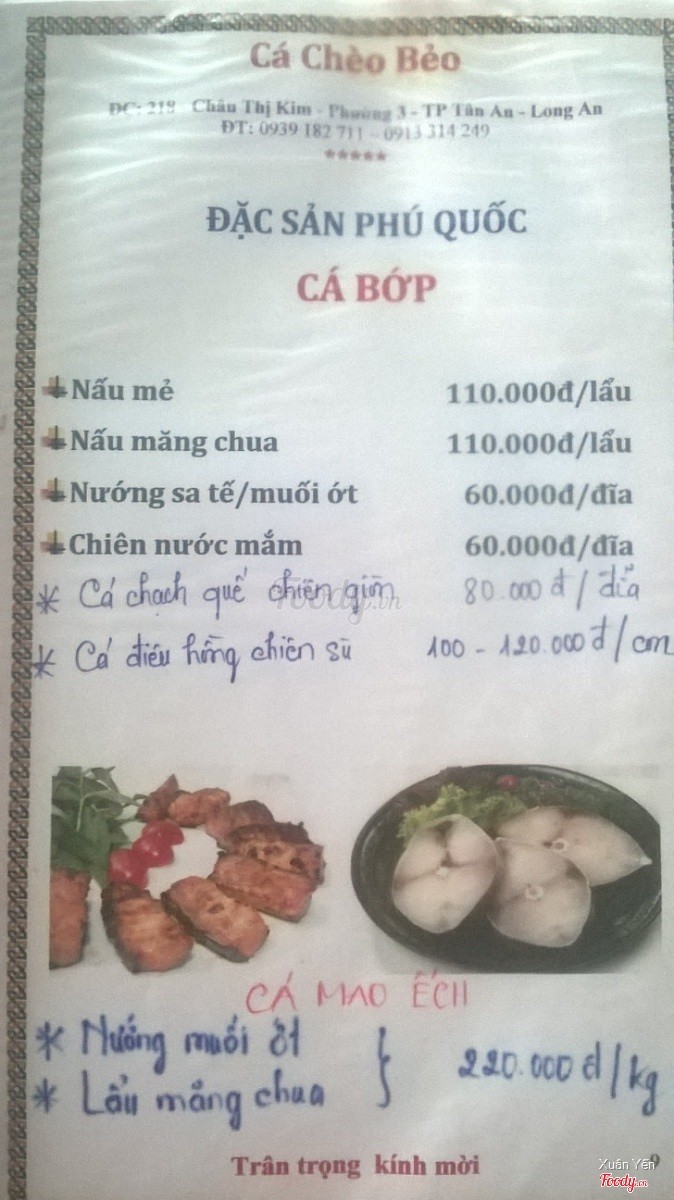 Cá Chèo Bẻo
ĐC: 218 Châu Thị Kim - Phường 3 - TP Tân An - Long An
ĐT: 0939 182 711 - 0913 314 249
*****
ĐẶC SẢN PHÚ QUỐC
CÁ BỚP
Nấu mẻ 110.000đ/lẩu
Nấu măng chua 110.000đ/lẩu
Nướng sa tế/muối ớt 60.000đ/đĩa
Chiên nước mắm 60.000đ/đĩa
* Cá chạch quế chiên giòn 80.000đ/dĩa
Foody.vn
* Cá điêu hồng chiên sù 100 - 120.000đ/cm
CÁ MAO ẾCH
* Nướng muối ớt
* Lẩu măng chua } 220.000đ/kg
Trân trọng kính mời 9
Xuân Yến
Foody.vn